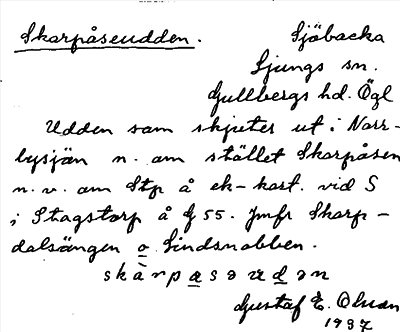 Skarpåseudden.
Sjöbacka
Ljungs sn.
Gullbergs hd. Ögl
Udden som skjuter ut i Norr-
lysjön n. om stället Skarpåsen
n.v. om Stp å ek-kart. vid S
i Stagstorp å G 55. Jmfr Skarp-
dalsängen o. Lindsnabben.
skàrpasəudən
Gustaf E. Olsson
1937